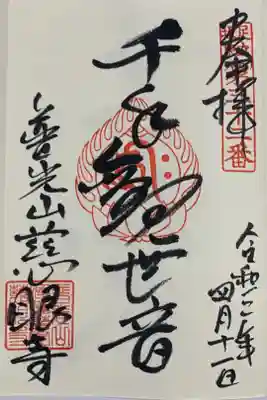 奉拝
千手観世音
令和
四月十一日
普光山慈眼寺